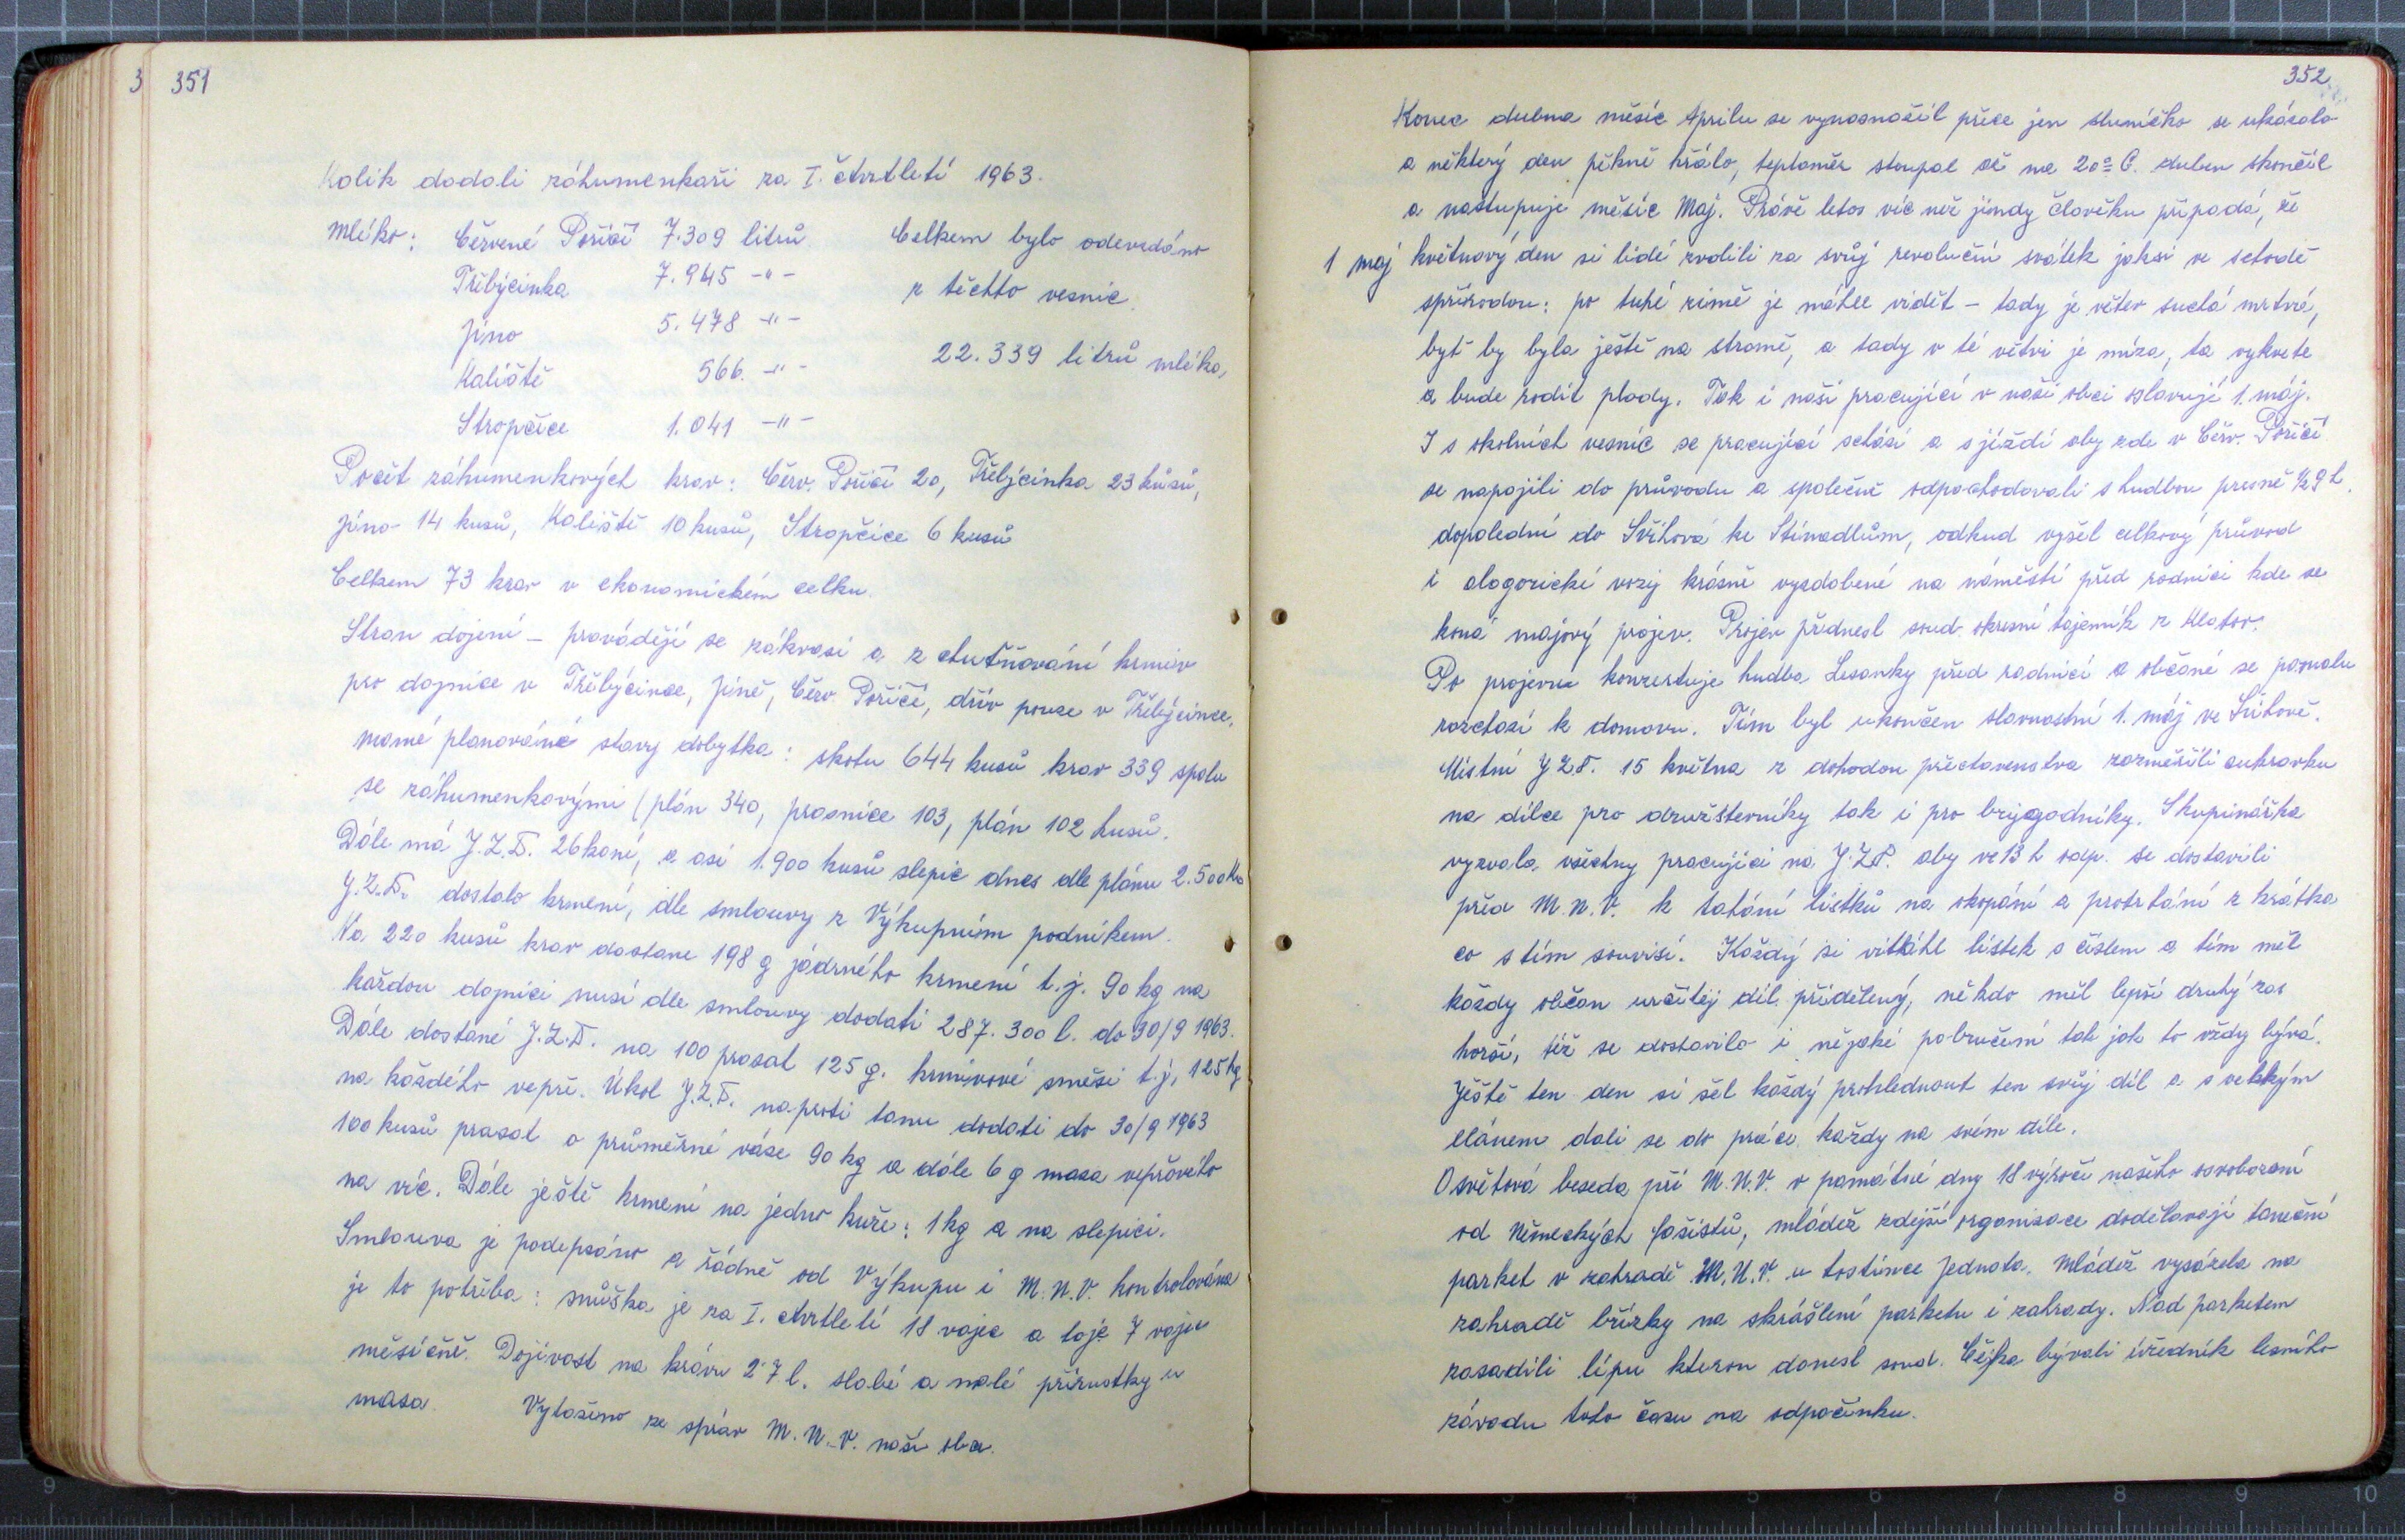 3 351
Kolik dodali záhumenkaři za I. čtvrtletí 1963.
Mléko: Červené Poříčí 7.309 litrů Celkem bylo odevzdáno
Třebýcinka 7.945 -"- z těchto vesnic
Jíno 5.478 -"-
Kaliště 566. -"- 22.339 litrů mléka,
Stropčice 1.041 -"-
Počet záhumenkových krav: Červ. Poříčí 20, Třebýcinka 23 kusů,
Jíno 14 kusů, Kaliště 10 kusů, Stropčice 6 kusů
Celkem 73 krav v ekonomickém celku.
Stran dojení – provádějí se zákvasi a z chutňování krmiv
pro dojnice v Třebýcince, Jíně, Červ Poříčí, dřív pouze v Třebýcince.
Mamé planováné stavy dobytka: skotu 644 kusů krav 339 spolu
se záhumenkovými (plán 340, prasnice 103, plán 102 kusů.
Dále má J.Z.D. 26 koní, a asi 1.900 kusů slepic dnes dle plánu 2.500 Ks
J.Z.D. dostalo krmení, dle smlouvy z Výkupním podnikem.
Na 220 kusů krav dostane 198 q jádrného krmení t.j. 90 kg na
každou dojnici musí dle smlouvy dodati 287.300 l. do 30/9 1963.
Dále dostané J.Z.D. na 100 prasat 125 q. krmivové směsi t.j, 125 kg
na každého vepře. Úkol J.Z.D. naproti tomu dodati do 30/9 1963
100 kusů prasat o průměrné váze 90 kg a dále 6 q masa vepřového
na víc. Dále ještě krmení na jedno kuře: 1 kg a na slepici.
Smlouva je podepsáno a řádně od Výkupu i M.N.V. kontrolována
je to potřeba: snůška je za I. čtvrtletí 18 vajec a toje 7 vajec
měsíčně. Dojivost na krávu 2˙7 l. slabé a malé přírustky u
masa. Vytaženo ze správ M.N.V. naší obce.
352
Konec dubna měsíc Aprilu se vynasnažil přece jen sluníčko se ukázalo
a některý den pěkně hřálo, teploměr stoupal až na 20° C. duben skončil
a nastupuje měsíc Maj. Právě letos víc než jindy člověku připadá, že
1 maj květnový den si lidé zvolili za svůj revoluční svátek jaksi ve schodě
spřírodou: po tuhé zimě je náhle vidět – tady je větev suchá mrtvá,
byť by byla ještě na stromě, a tady v té větvi je míza, ta vykvete
a bude rodit plody. Tak i naši pracující v naší obci oslavují 1. máj.
I s okolních vesnic se pracující schází a sjíždí aby zde v Červ. Poříčí
se napojili do průvodu a společně odpochodovali s hudbou presně 1/2 9 h.
dopolední do Švihova ke Stínadlům, odkud vyšel celkový průvod
i alogorické vozy krásně vyzdobené na náměstí před radnici kde se
koná majový projev. Projev přednesl soud. okresní tajemník z Klatov.
Po projevu konzertuje hudba Lesanky před radnicí a občané se pomalu
rozchází k domovu. Tím byl ukončen slavnostní 1. máj ve Švihově.
Místní JZD. 15 května z dohodou představenstva rozměřili cukrovku
na dílce pro družšterníky tak i pro brygadníky. Skupinářka
vyzvala všechny pracující na J.Z.D. aby ve 13 h odp. se dostavili
před M.N.V. k tahání lístků na okopání a protrhání z krátka
co s tím souvisí. Každý si vitáhl lístek s číslem a tím měl
každy občan určitéj díl přidělený, někdo měl lepší druhý zas
horší, též se dostavilo i nějaké pobručení tak jak to vždy bývá.
Ještě ten den si šel každý prohlednout ten svůj díl a s velkým
elánem dali se do práce každy na svém díle.
Osvětová beseda při M.N.V. v památné dny 18 výročí našeho osvobození
od Německých fašistů, mládež zdejší organisace dodělavají taneční
parket v zahradě M.N.V. u hostince Jednota. Mládež vysázela na
zahradě břízky na skrášlení parketu i zahrady. Nad parketem
zasadili lípu kterou donesl soud. Čejka bývali úředník lesního
závodu toho času na odpočinku.